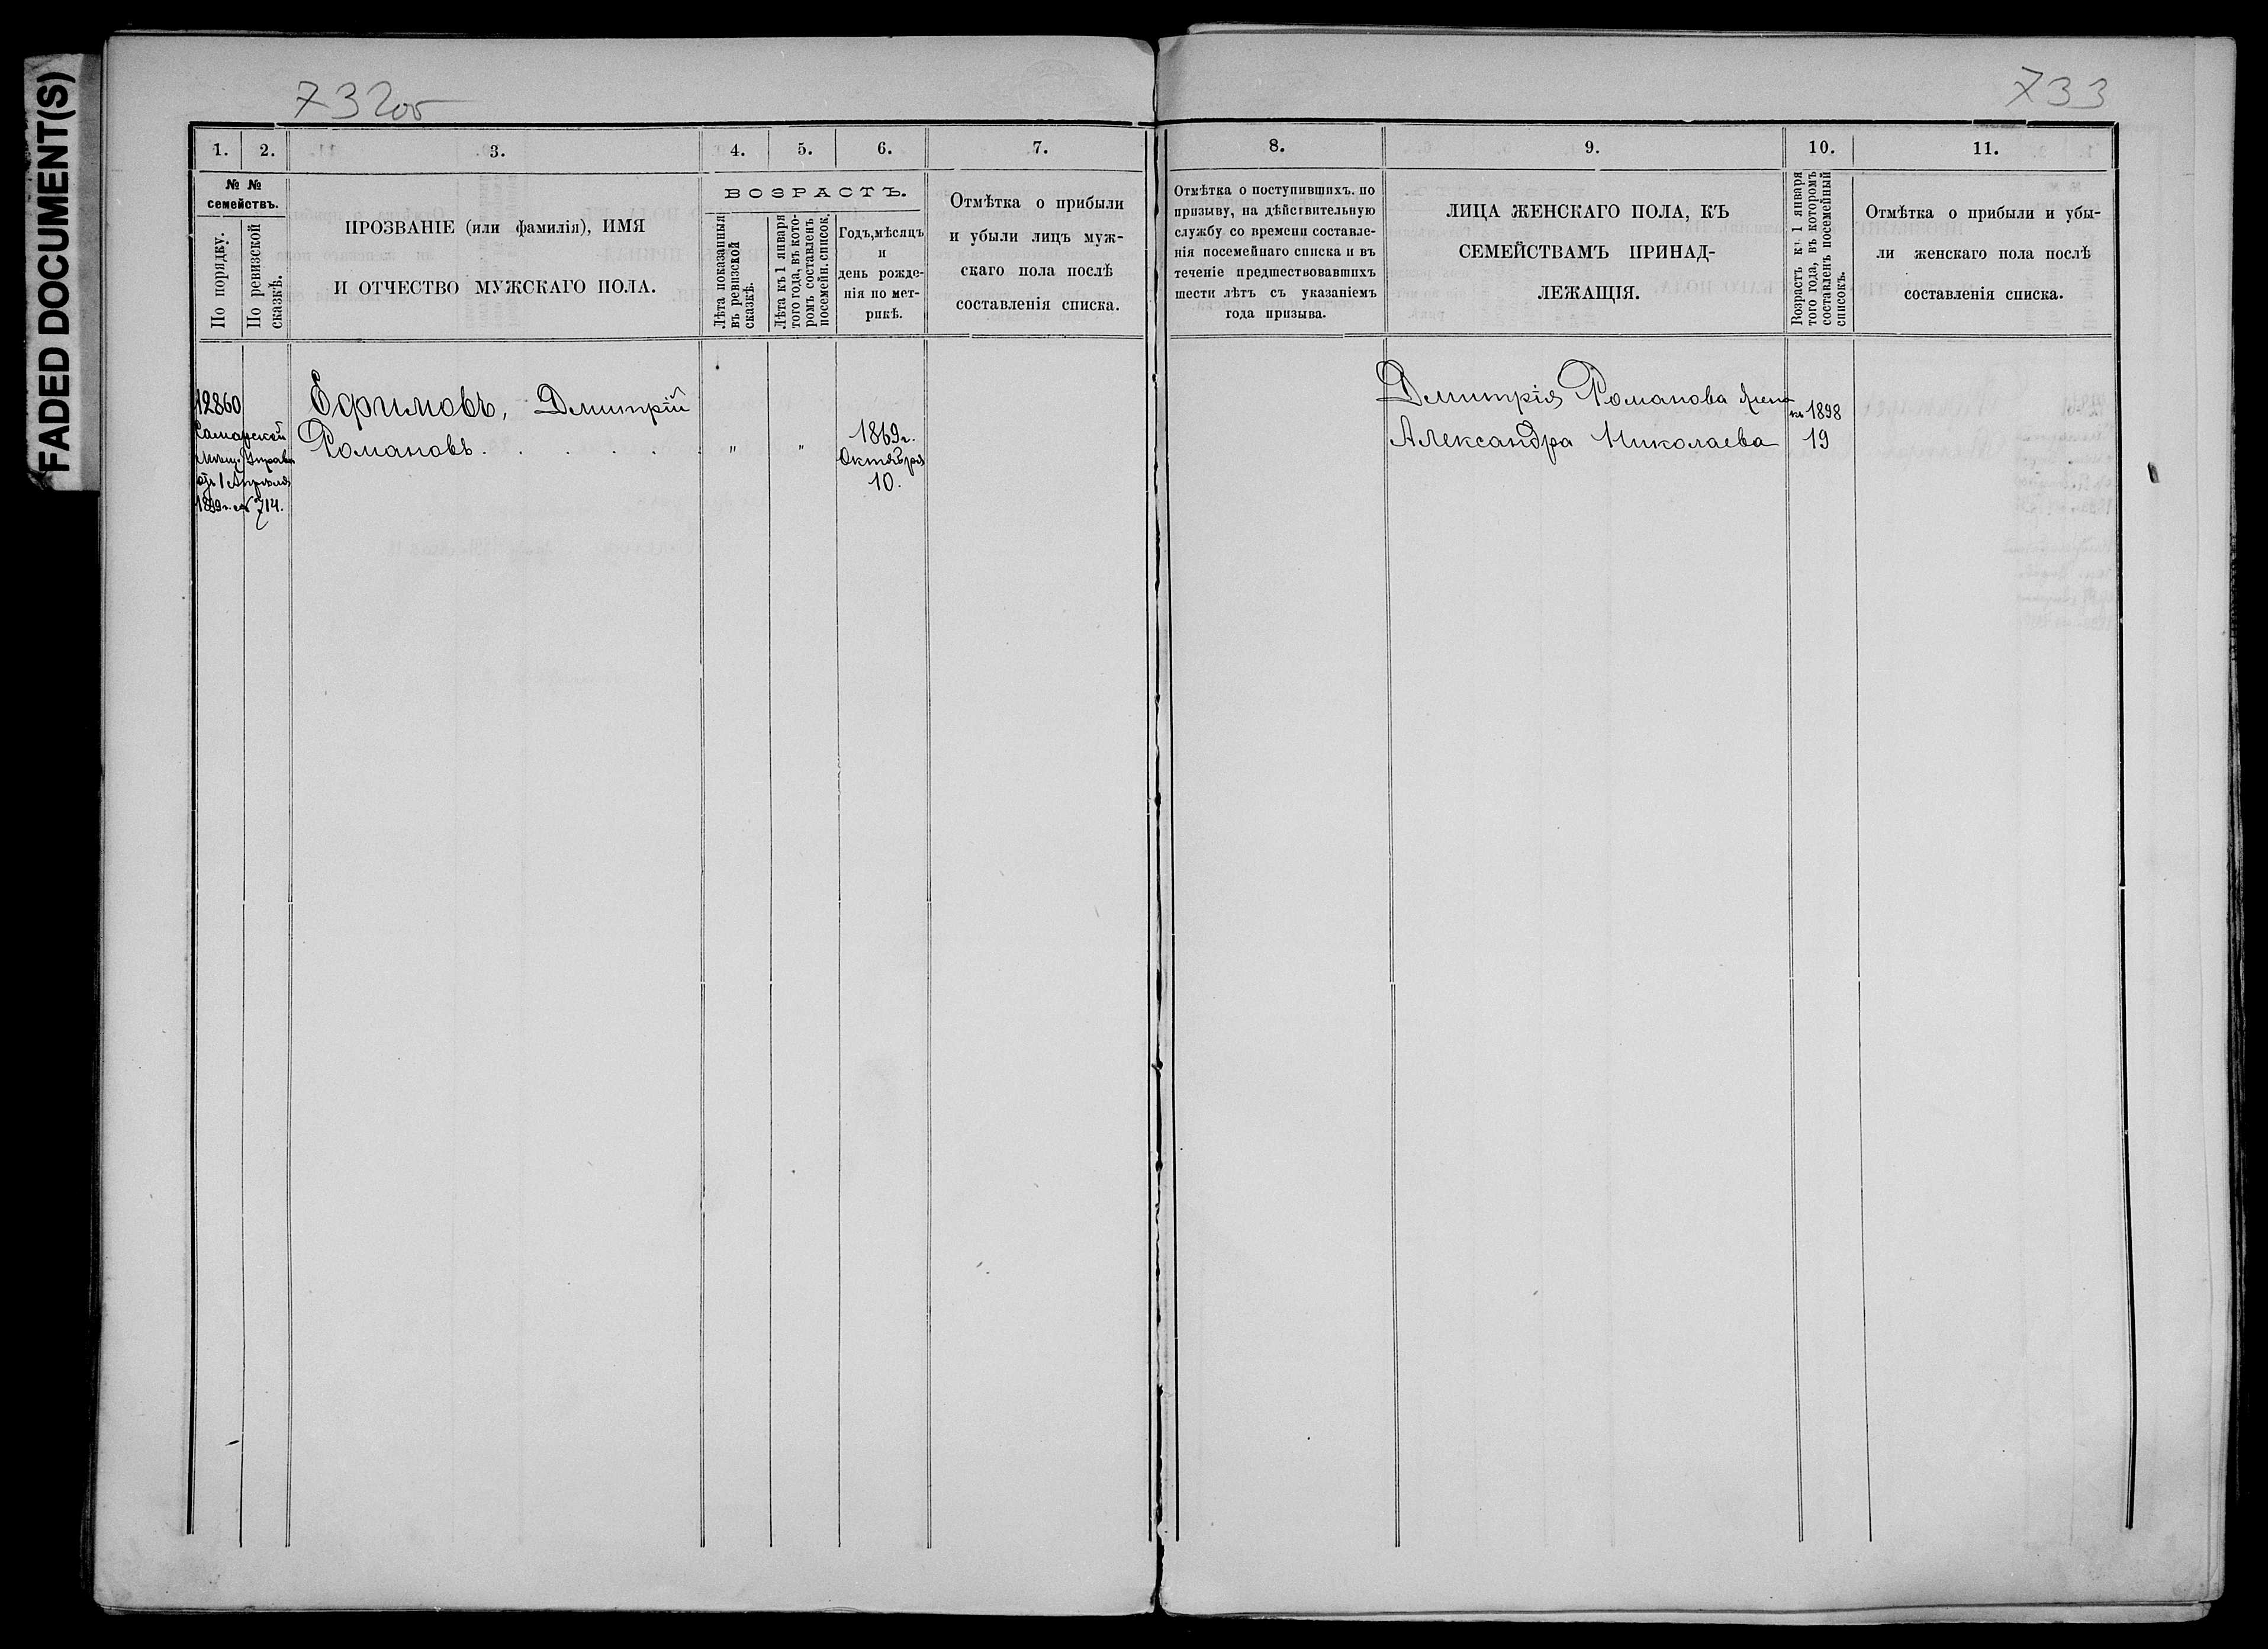 FADED DOCUMENT(S)
732об
733
1. 2. 3. 4. 5. 6. 7.
№ №
семействъ.
По порядку.
По ревизской
сказкѣ.
ПРОЗВАНІЕ (или фамилія), ИМЯ
И ОТЧЕСТВО МУЖСКАГО ПОЛА.
ВОЗРАСТЪ.
Лѣта показанныя
въ ревизской
сказкѣ.
Лѣта къ 1 января
того года, въ кото-
ромъ составленъ
посемейн. список.
Годъ, мѣсяцъ
и
день рожде-
нія по мет-
рикѣ.
Отмѣтка о прибыли
и убыли лицъ муж-
скаго пола послѣ
составленія списка.
12860
Самарской
Мѣщ. Управы
отъ 1 Апрѣля
1899 г. за № 714.
Ефимовъ, Дмитрій
Романовъ . . . . . . " "
1869 г.
Октября
10.
8. 9. 10. 11.
Отмѣтка о поступившихъ. по
призыву, на дѣйствительную
службу со времени составле-
нія посемейнаго списка и въ
теченіе предшествовавшихъ
шести лѣтъ съ указаніемъ
года призыва.
ЛИЦА ЖЕНСКАГО ПОЛА, КЪ
СЕМЕЙСТВАМЪ ПРИНАД-
ЛЕЖАЩІЯ.
Возрастъ къ 1 января
того года, въ которомъ
составленъ посемейный
списокъ.
Отмѣтка о прибыли и убы-
ли женскаго пола послѣ
составленія списка.
Дмитрія Романова жена
къ 1898
Александра Николаева 19